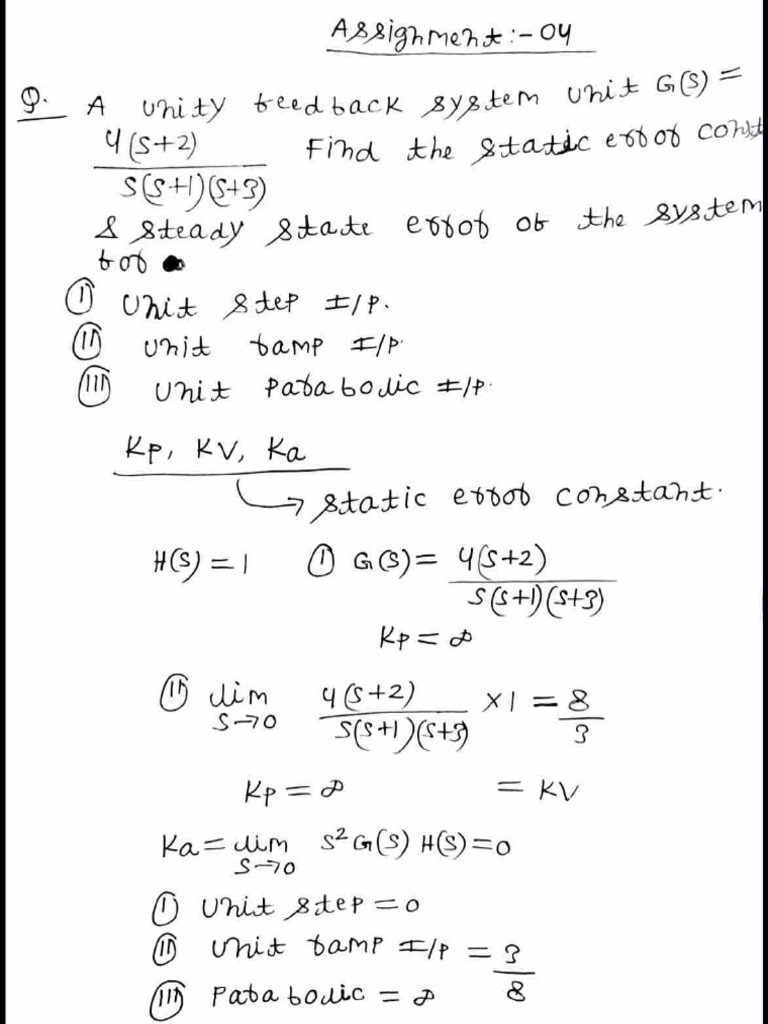 Assignment:-04
Q. A unity feedback system unit G(S) =
4(S+2) / S(S+1)(S+3) Find the static error const
& steady state error of the system
for
(I) Unit step I/P.
(II) unit ramp I/P.
(III) Unit Parabolic I/P.
Kp, KV, Ka
→ static error constant.
H(S) = 1 (I) G(S) = 4(S+2) / S(S+1)(S+3)
Kp = ∞
(II) lim S→0 4(S+2) / S(S+1)(S+3) × 1 = 8/3
Kp = ∞ = KV
Ka = lim S→0 S² G(S) H(S) = 0
(I) Unit step = 0
(II) Unit ramp I/P = 3/8
(III) Parabolic = ∞